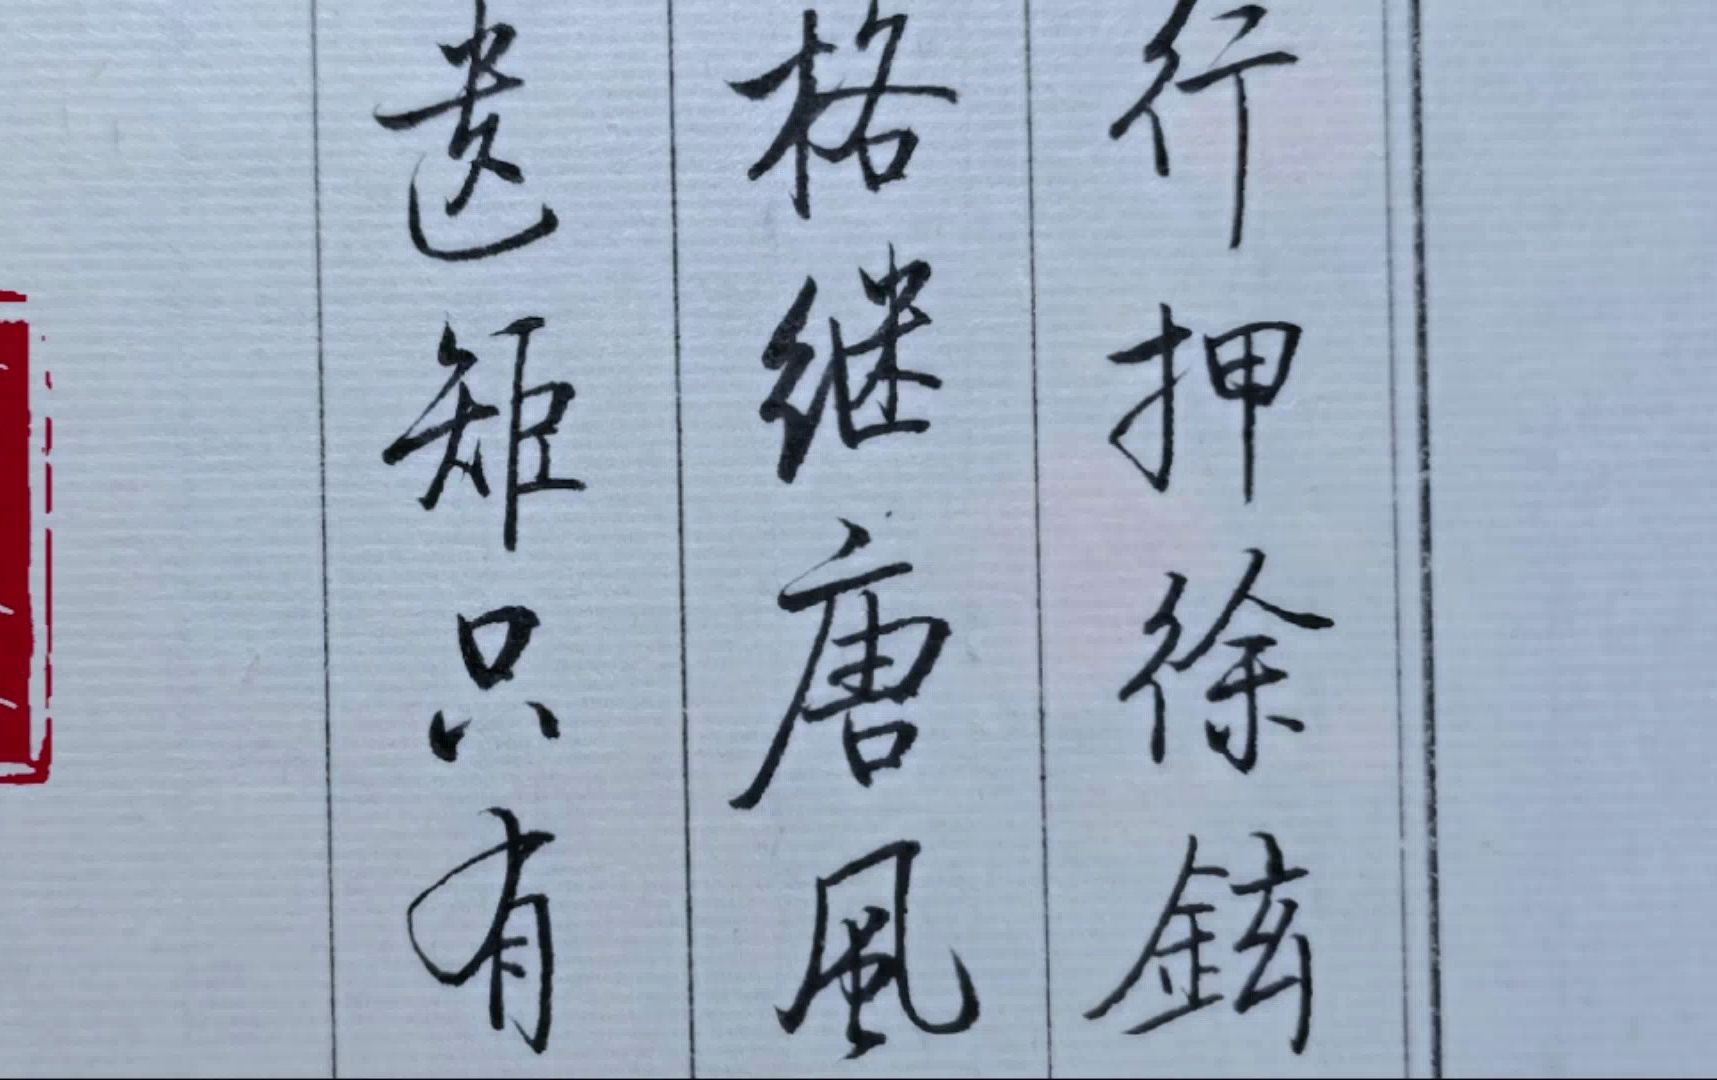 行押徐鉉
格继唐風
遗矩只有